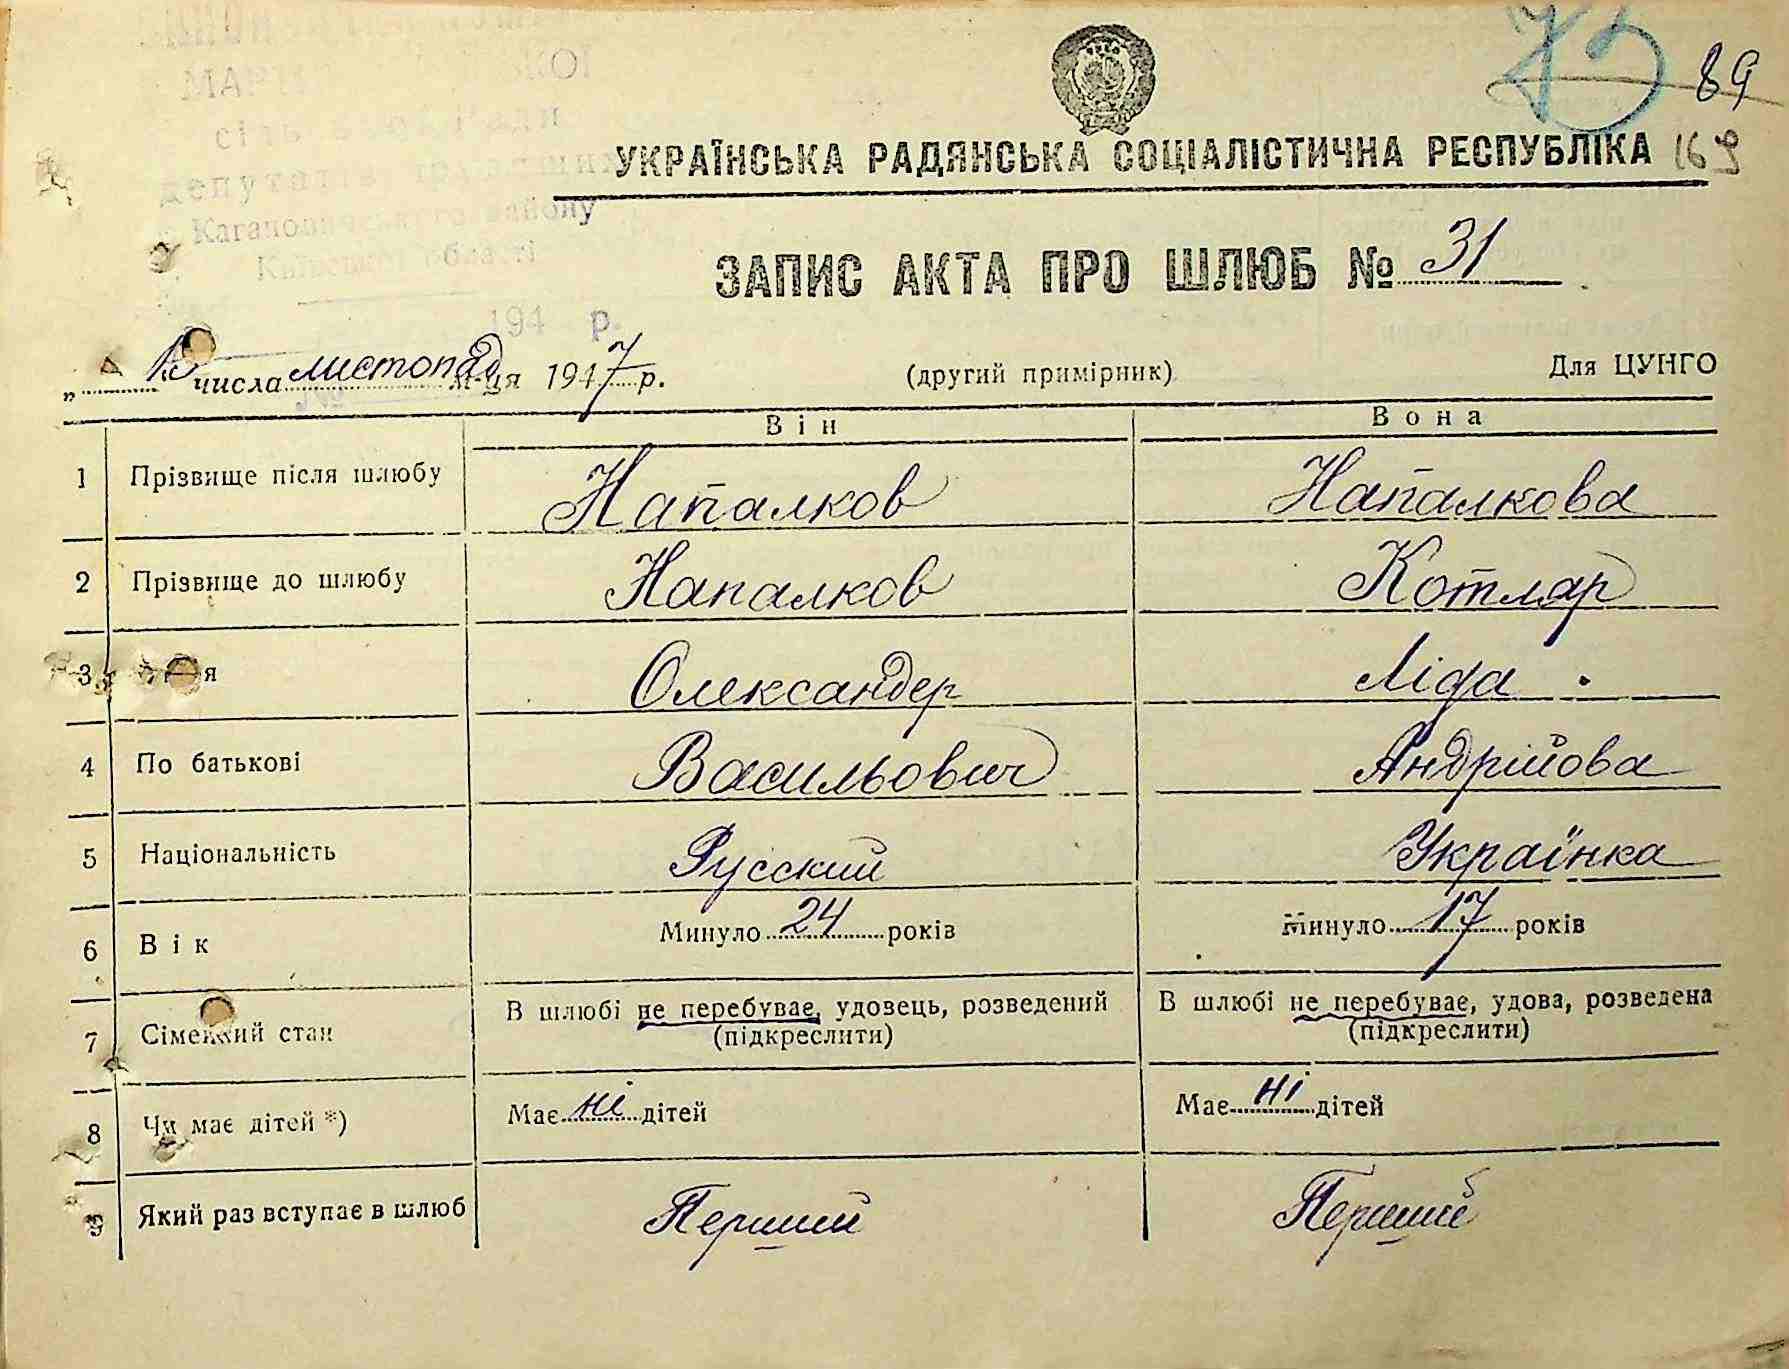 73 89
УКРАЇНСЬКА РАДЯНСЬКА СОЦІАЛІСТИЧНА РЕСПУБЛІКА 169
сіль ої Ради
депутатів трудящих
Кагановичського району
Київської області
194 р.
ЗАПИС АКТА ПРО ШЛЮБ № 31
числа листопад м-ця 1947 р. (другий примірник) Для ЦУНГО
Він Вона
1 Прізвище після шлюбу Напалков Напалкова
2 Прізвище до шлюбу Напалков Котляр
3 я Олександер Ліда
4 По батькові Васильович Андрійова
5 Національність Русский Українка
6 Вік Минуло 24 років Минуло 17 років
7 Сімейний стан В шлюбі не перебуває, удовець, розведений В шлюбі не перебуває, удова, розведена
(підкреслити) (підкреслити)
8 Чи має дітей *) Має ні дітей Має ні дітей
9 Який раз вступає в шлюб Перший Перший